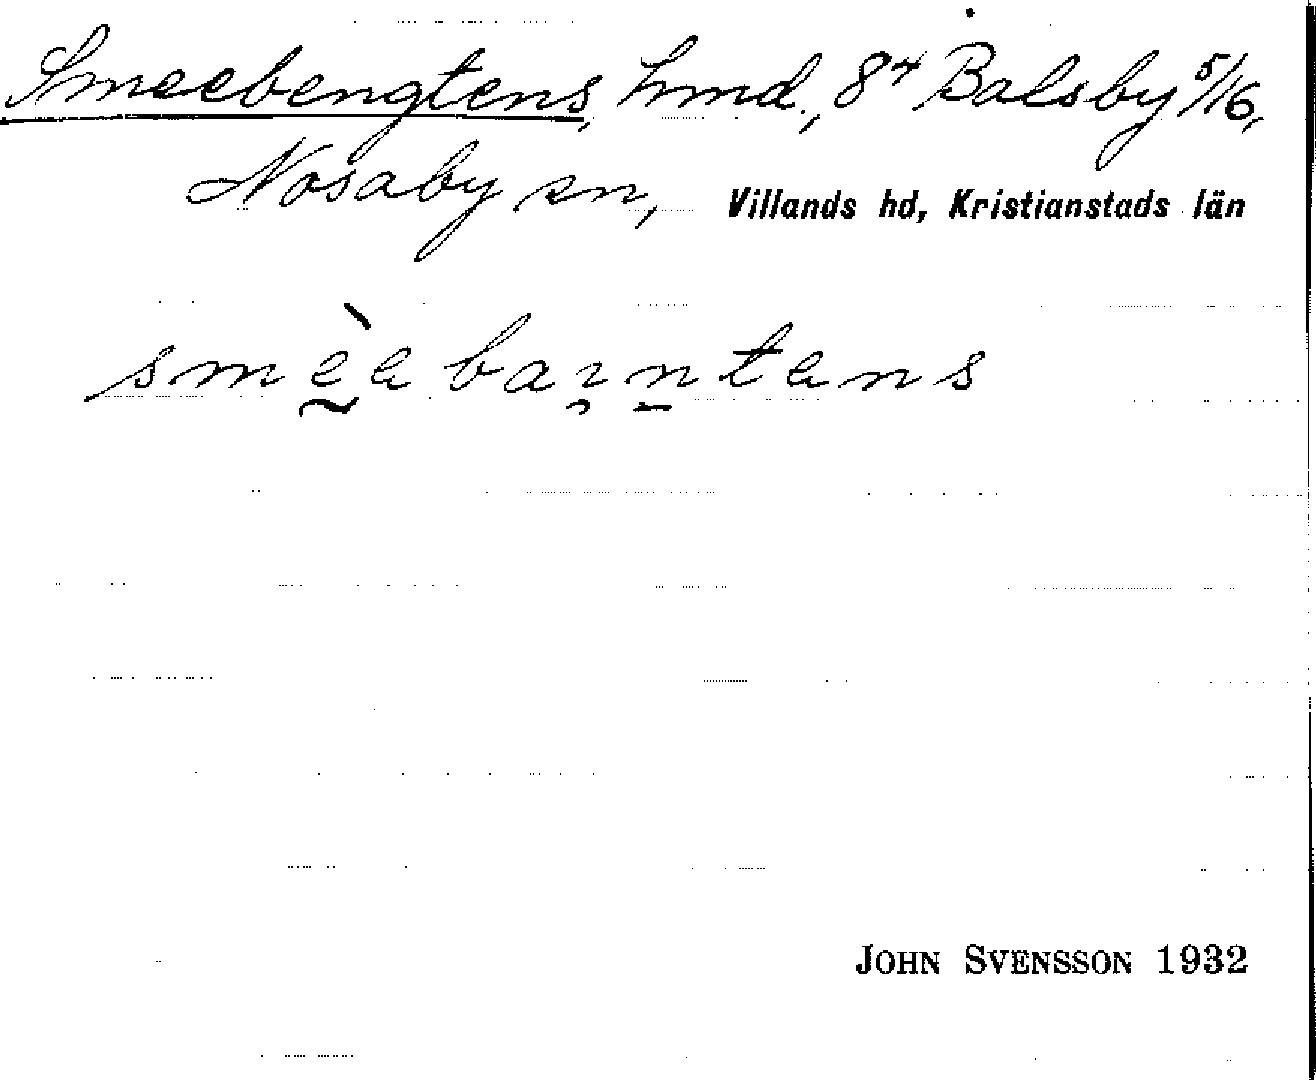 Smeebengtens, hmd., 8⁴ Balsby 5/16,
Nosaby sn, Villands hd, Kristianstads län
smèebaıntens
JOHN SVENSSON 1932